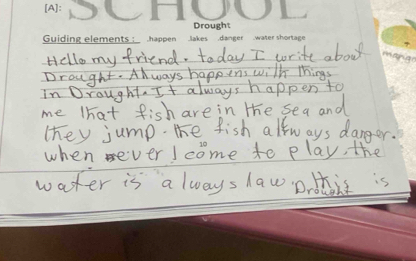 [A]: SCHOOL
Drought
Guiding elements : .happen .lakes .danger .water shortage
Hello my friend. today I write about
Drought. Always happens with things
In Drought. It always happen to
me that fish are in the sea and
they jump. the fish allways danger.
when ever I come to play. the
water is always law. this is
Drought